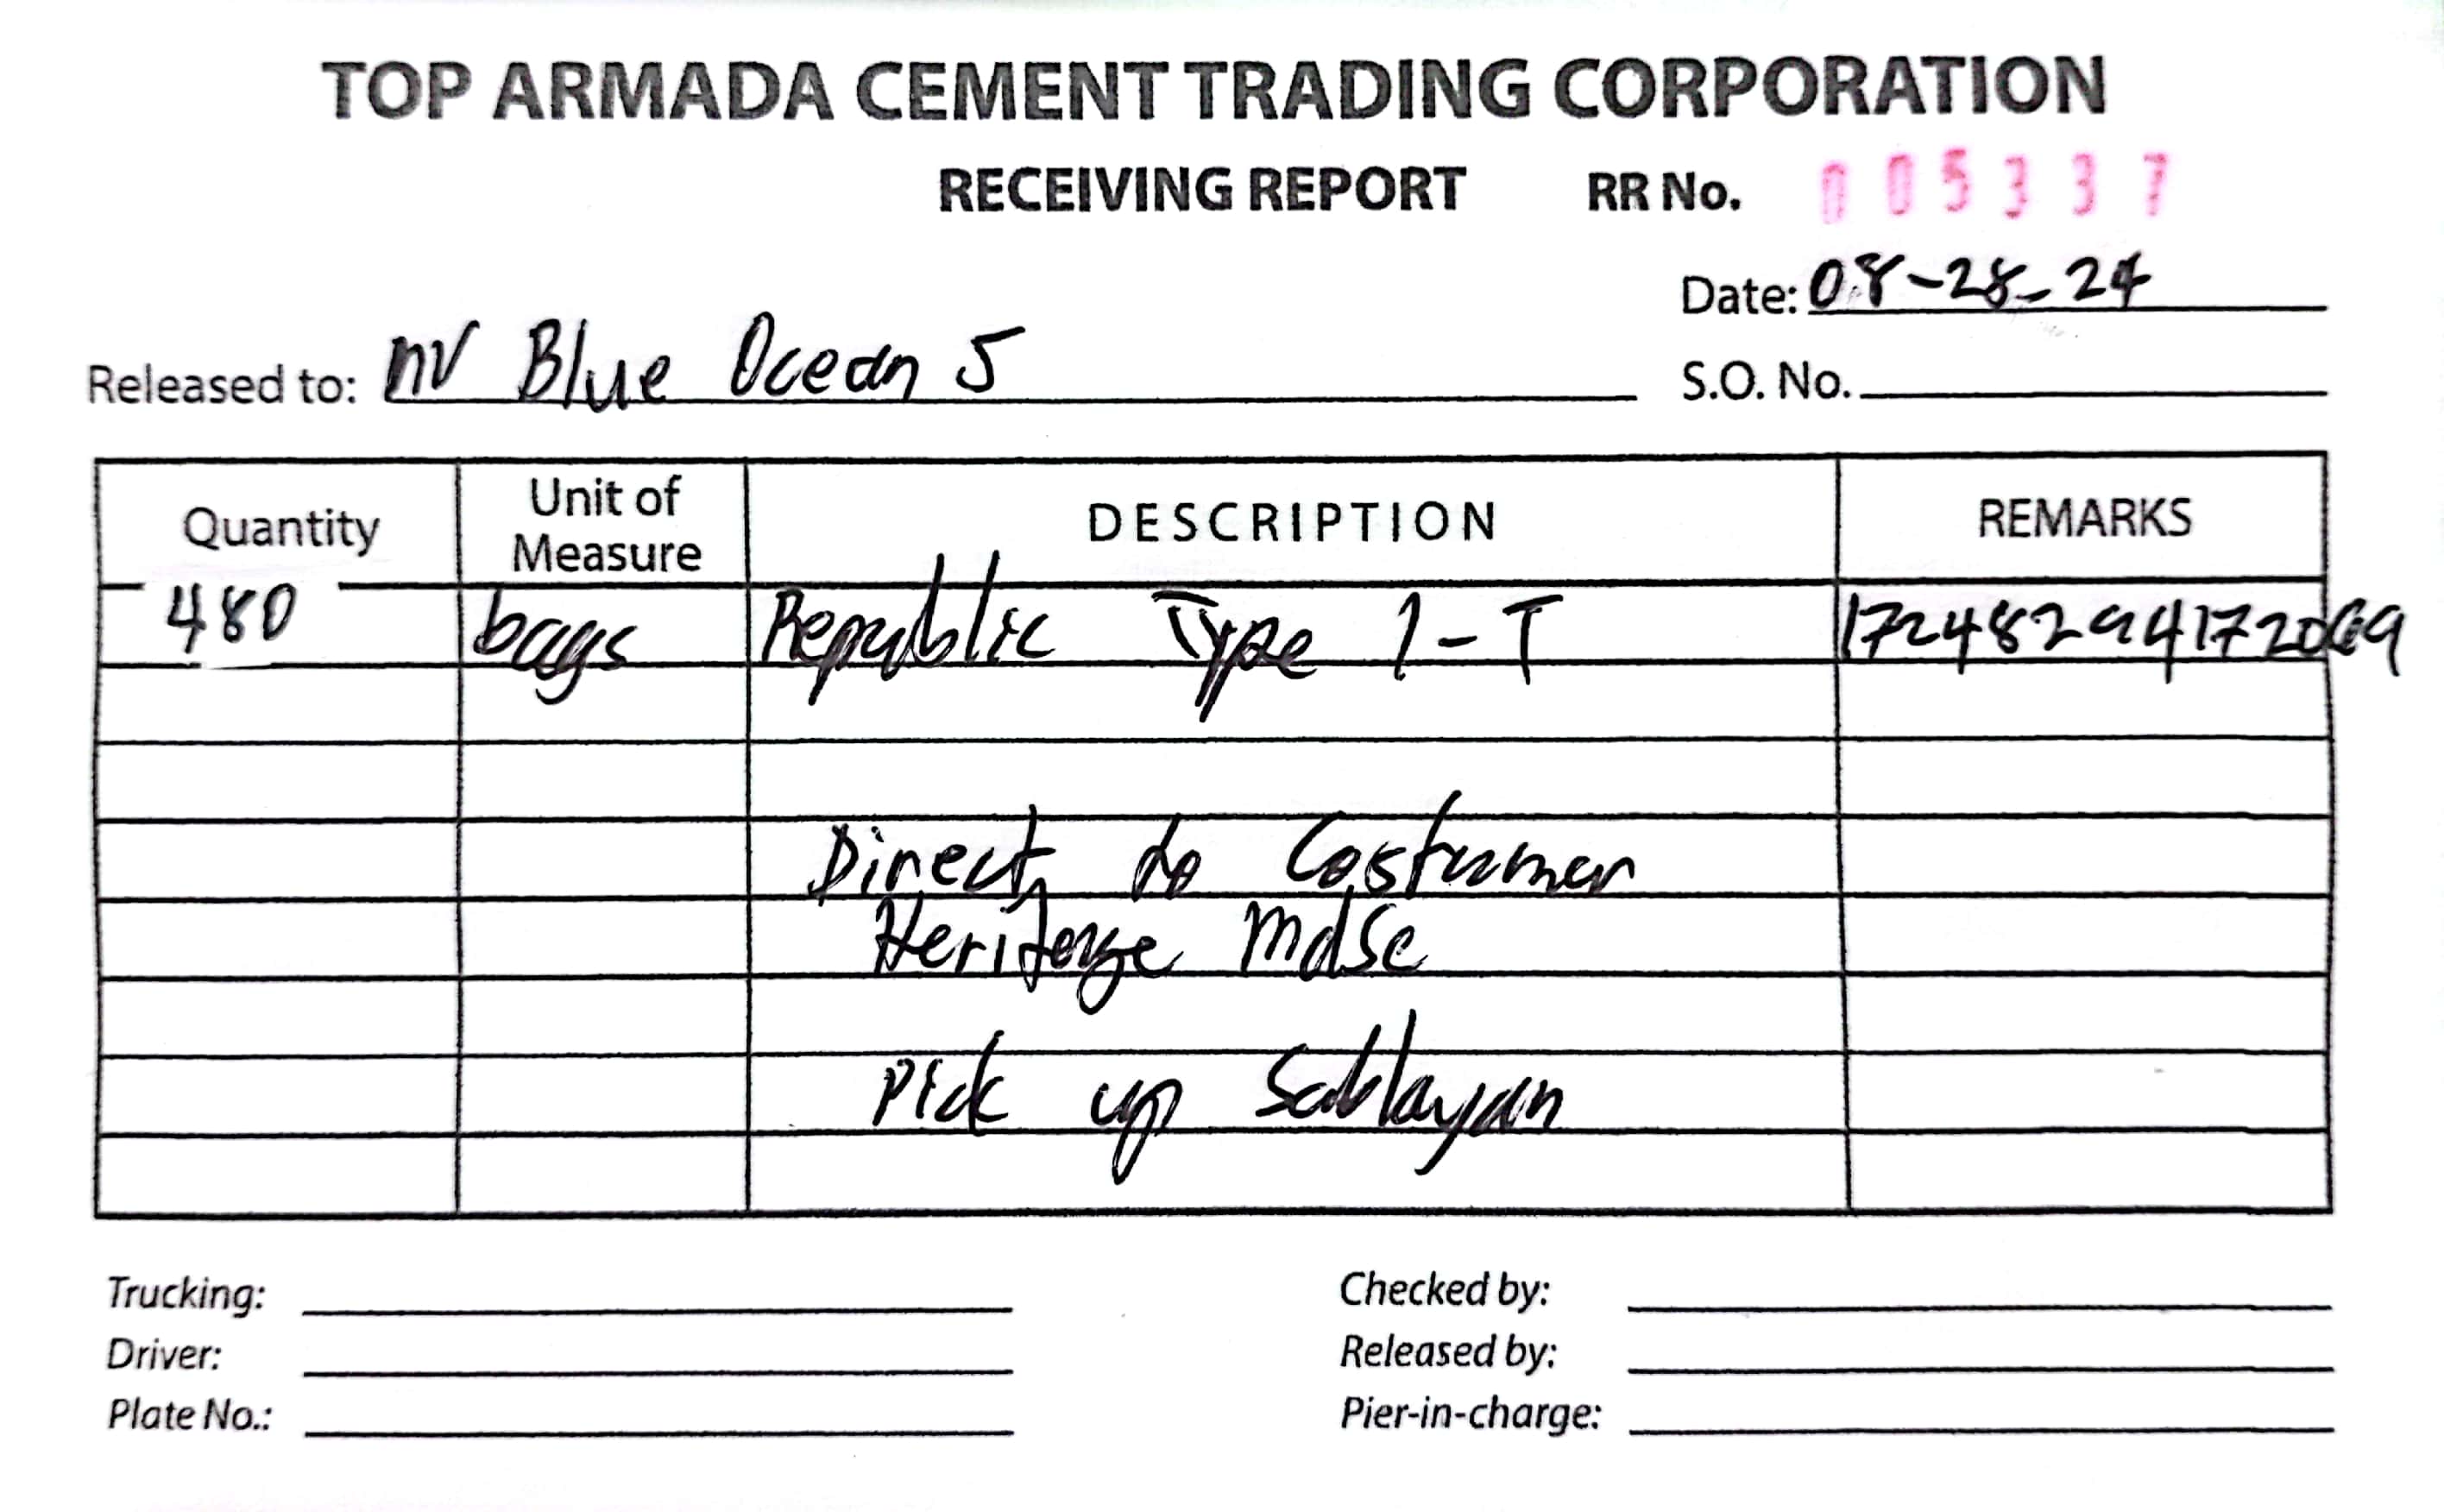 TOP ARMADA CEMENT TRADING CORPORATION
RECEIVING REPORT RR No. 005337
Date: 08-28-24
Released to: MV Blue Ocean 5 S.O. No.
Quantity Unit of Measure DESCRIPTION REMARKS
480 bags Republic Type 1-T 17248294172069
Direct to Costumer
Heritage Mdse
Pick up Sablayan
Trucking: Checked by:
Driver: Released by:
Plate No.: Pier-in-charge: